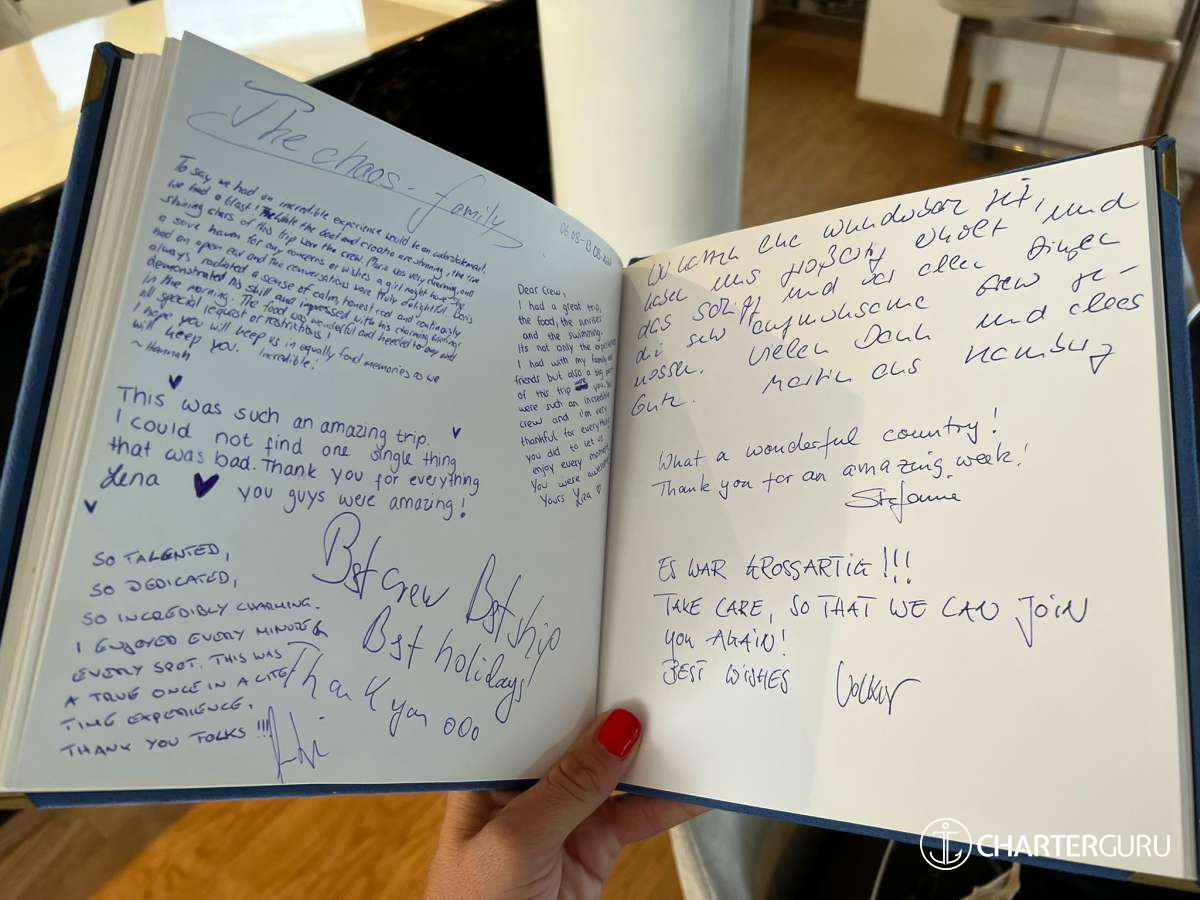 The chaos-family
06.08-
To say we had an incredible experience would be an understatement.
we had a blast! While the boat and croatia are stunning, the true
shining stars of this trip were the crew. Maria was very charming, and
a save haven for any concerns or wishes a girl might have. She
had an open ear and the conversations were truly delightful. Boris
always radiated a sense of calm, honest and and continously
demonstrated his skill and impressed with his charming
in the morning. The food was wonderful and heeded to any and
all special request or restrictions!
I hope you will keep us in equally fond memories as we
will keep you. Incredible!
~Hannah
Dear Crew,
I had a great trip,
the food, the sunrises
and the swimming.
Its not only the experience
I had with my family and
friends but also a big part
of this trip you. You
were such an incredible
crew and i'm very
thankful for everything
you did to let us
enjoy every moment
You were awesome
Yours Liza ♡
This was such an amazing trip.
I could not find one single thing
that was bad. Thank you for everything
Lena ♥ you guys were amazing!
SO TALENTED,
SO DEDICATED,
SO INCREDIBLY CHARMING.
I ENJOYED EVERY MINUTE &
EVERY SPOT. THIS WAS
A TRUE ONCE IN A LIFE
TIME EXPERIENCE.
THANK YOU FOLKS !!!
Bst crew Bst ship
Bst holidays
Thank you ooo
Wir hatten eine wunderbare Zeit, und
haben uns großartig erholt
das Schiff und vor allen Dingen
die sehr aufmerksame Crew ge-
nossen. Vielen Dank und alles
Gute. Martin aus Hamburg
What a wonderful country!
Thank you for an amazing week!
Stefanie
ES WAR GROSSARTIG!!!
TAKE CARE, SO THAT WE CAN JOIN
YOU AGAIN!
BEST WISHES Volker
CHARTERGURU